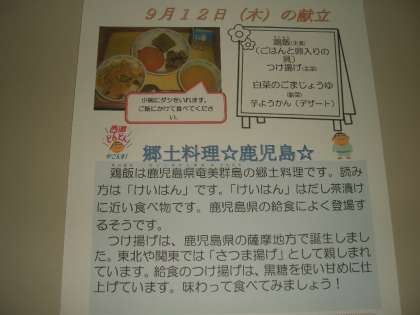 9月12日（木）の献立
鶏飯(主食)
（ごはんと卵入りの
具）
つけ揚げ(主菜)
白菜のごまじょうゆ
(副菜)
芋ようかん（デザート）
小椀にダシをいれます。
ご飯にかけて食べてくださ
い。
西郷
どんどん
がごんす!
郷土料理☆鹿児島☆
鶏飯は鹿児島県奄美群島の郷土料理です。読み
方は「けいはん」です。「けいはん」はだし茶漬け
に近い食べ物です。鹿児島県の給食によく登場す
るそうです。
つけ揚げは、鹿児島県の薩摩地方で誕生しまし
た。東北や関東では「さつま揚げ」として親しま
れています。給食のつけ揚げは、黒糖を使い甘めに仕
上げています。味わって食べてみましょう！